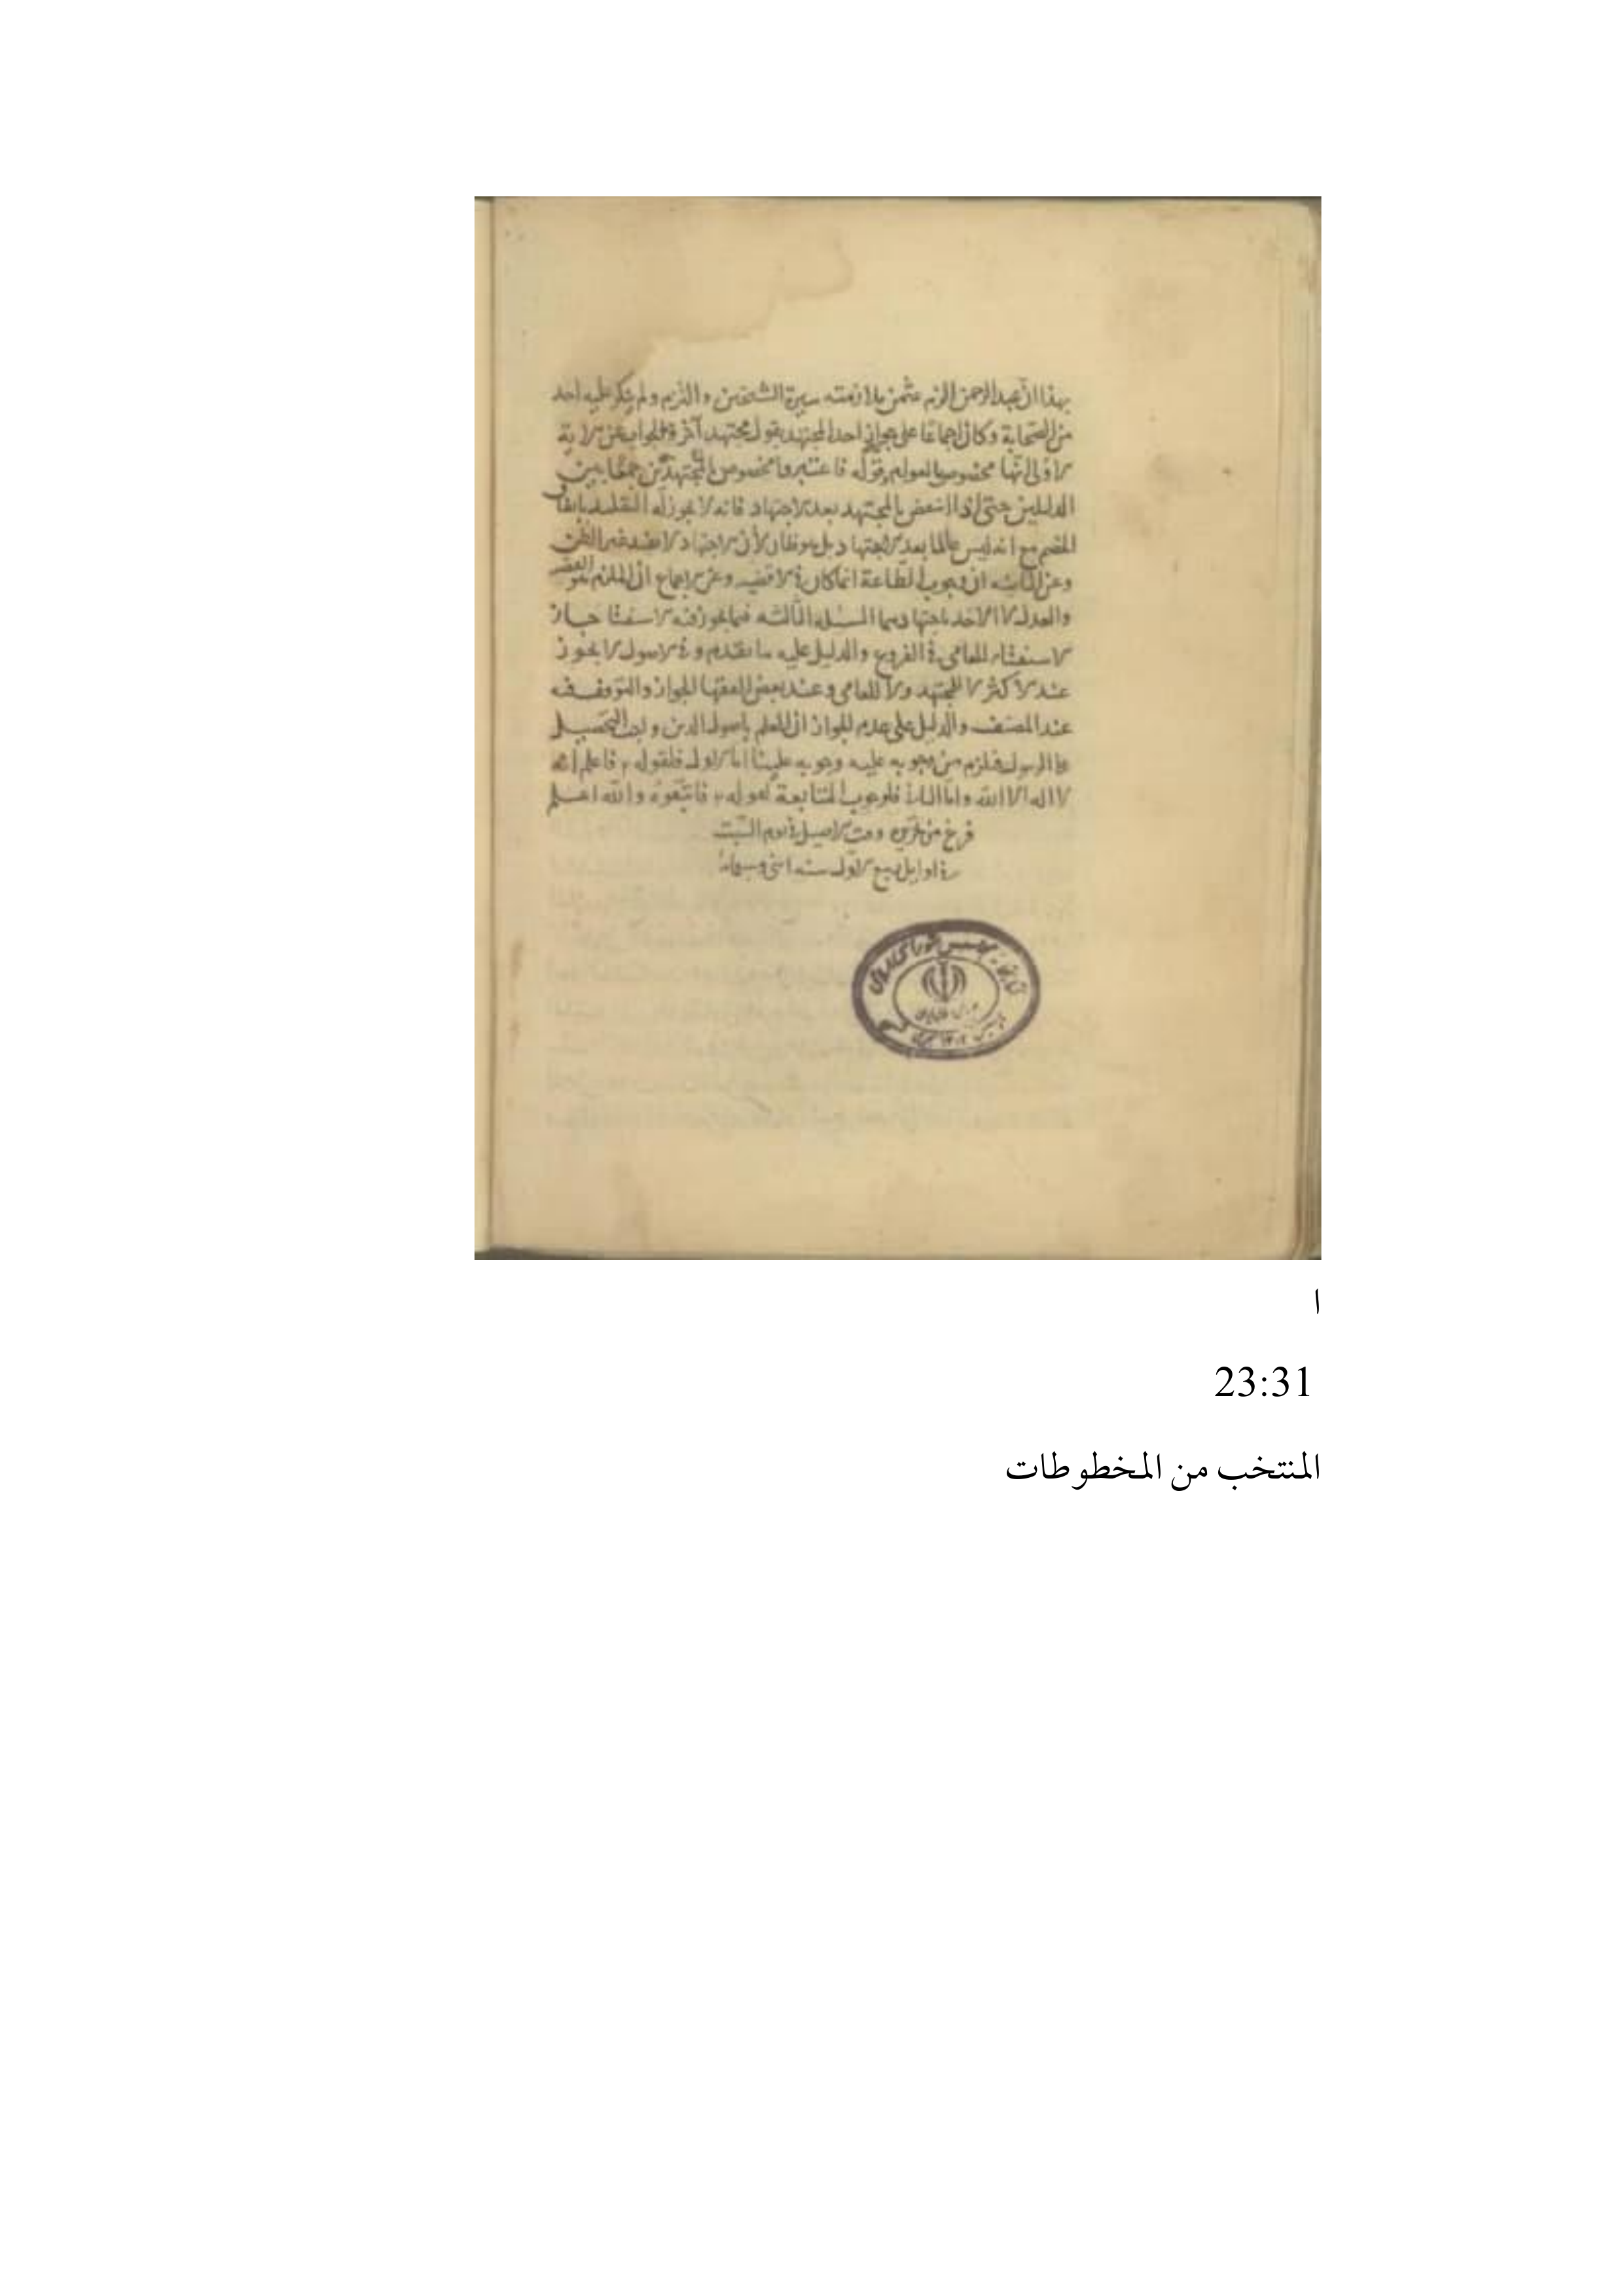 بهذا ان عبد الرحمن الزم عثمن ملازمته سيرة الشيخين والتزم ولم ينكر عليه احد
من الصحابة وكان اجماعا على جواز احد المجتهد بقول مجتهد آخر والجواب عن الاية
الاولى انها مخصوص بالعوام وقوله فاعتبروا مخصوص بالمجتهدين جمعا بين
الدليلين حتى اذا انتقض بالمجتهد بعد الاجتهاد فانه لا يجوز له التقليد باتفاق
الخصم مع انه ليس عالما بعد الاجتهاد بل هو ظان لأن الاجتهاد لا يفيد غير الظن
وعن الثانية ان وجوب الطاعة انما كان في الاقضيه وعن الاجماع ان الملتزم هو
والعدل لا الاخذ باجتهادهما المسئلة الثالثه فيما يجوز فيه الاستفتا جاز
الاستفتاء للعامى في الفروع والدليل عليه ما تقدم وفي الاصول لا يجوز
عند الاكثر لا للمجتهد ولا للعامي وعند بعض الفقها الجواز والتوقف فيه
عند المصنف والدليل على عدم الجواز ان العلم باصول الدين واجب التحصيل
على الرسول فلزم من وجوبه عليه وجوبه علينا اما الاول فلقوله فاعلم انه
لا اله الا الله واما الثاني فلوجوب المتابعة لقوله فاتبعوه والله اعلم
فرغ من وقت الاصيل في يوم السبت
في اوايل ربيع الاول سنه اثنى وسبعمائه
كتابخانه مجلس شورای اسلامی
ا
23:31
المنتخب من المخطوطات